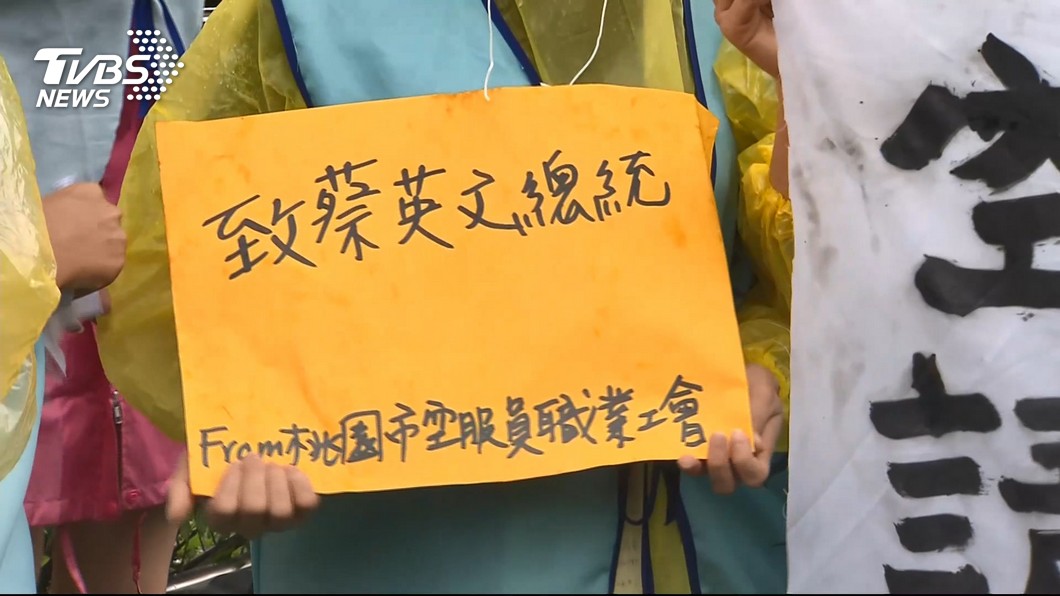 TVBS
NEWS
致蔡英文總統
From 桃園市空服員職業工會
空
請